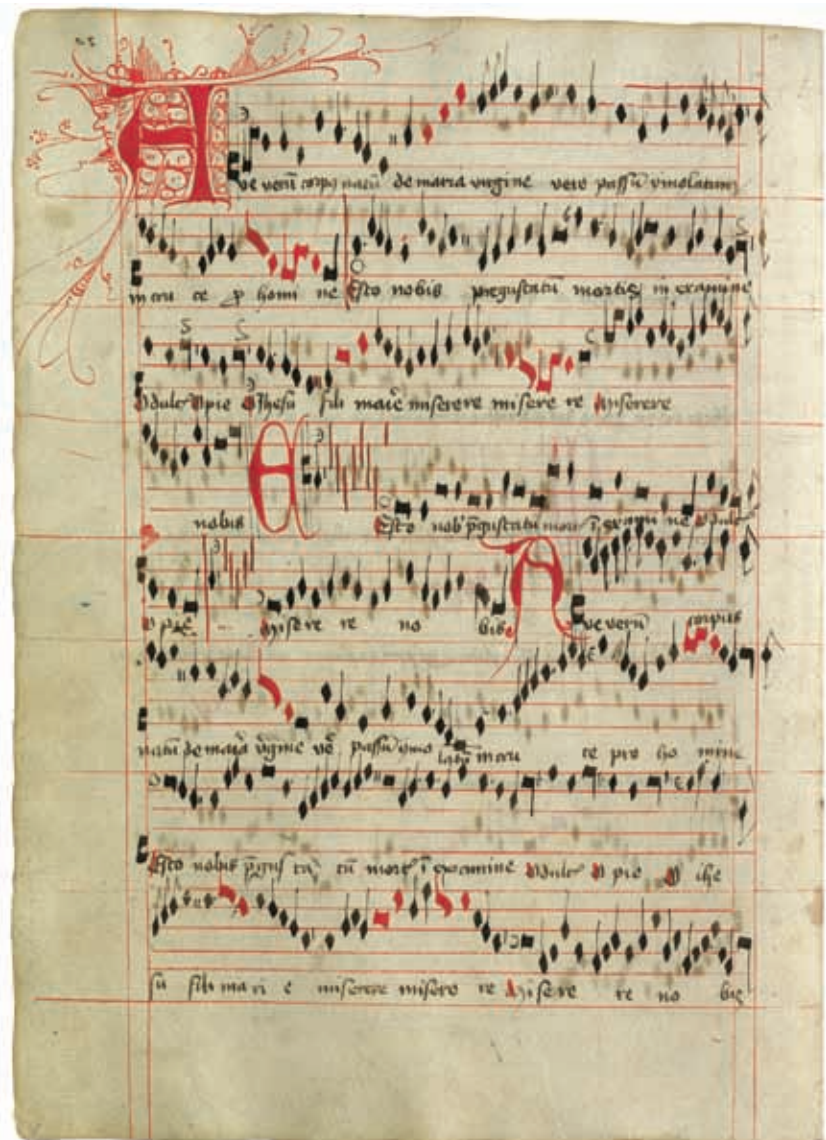 Ave verū corpꝰ natū de maria virgine vere passū ymolatum
in cru ce ꝓ homi ne Esto nobis pregustatū mortis in examine
O dulcꝭ O pie O Jhesu fili marie miserere misere re Miserere
nobis Esto nobꝭ pgustatū mortꝭ ī exami ne O dulcꝭ
O pie Misere re no bis Ave verū corpus
natū de maria vgine ve passū ymo latū in cru ce pro ho mine
Esto nobis pgus ta tū mortꝭ ī examine O dulcꝭ O pie O ihe
su fili mari e miserere misere re Misere re no bis